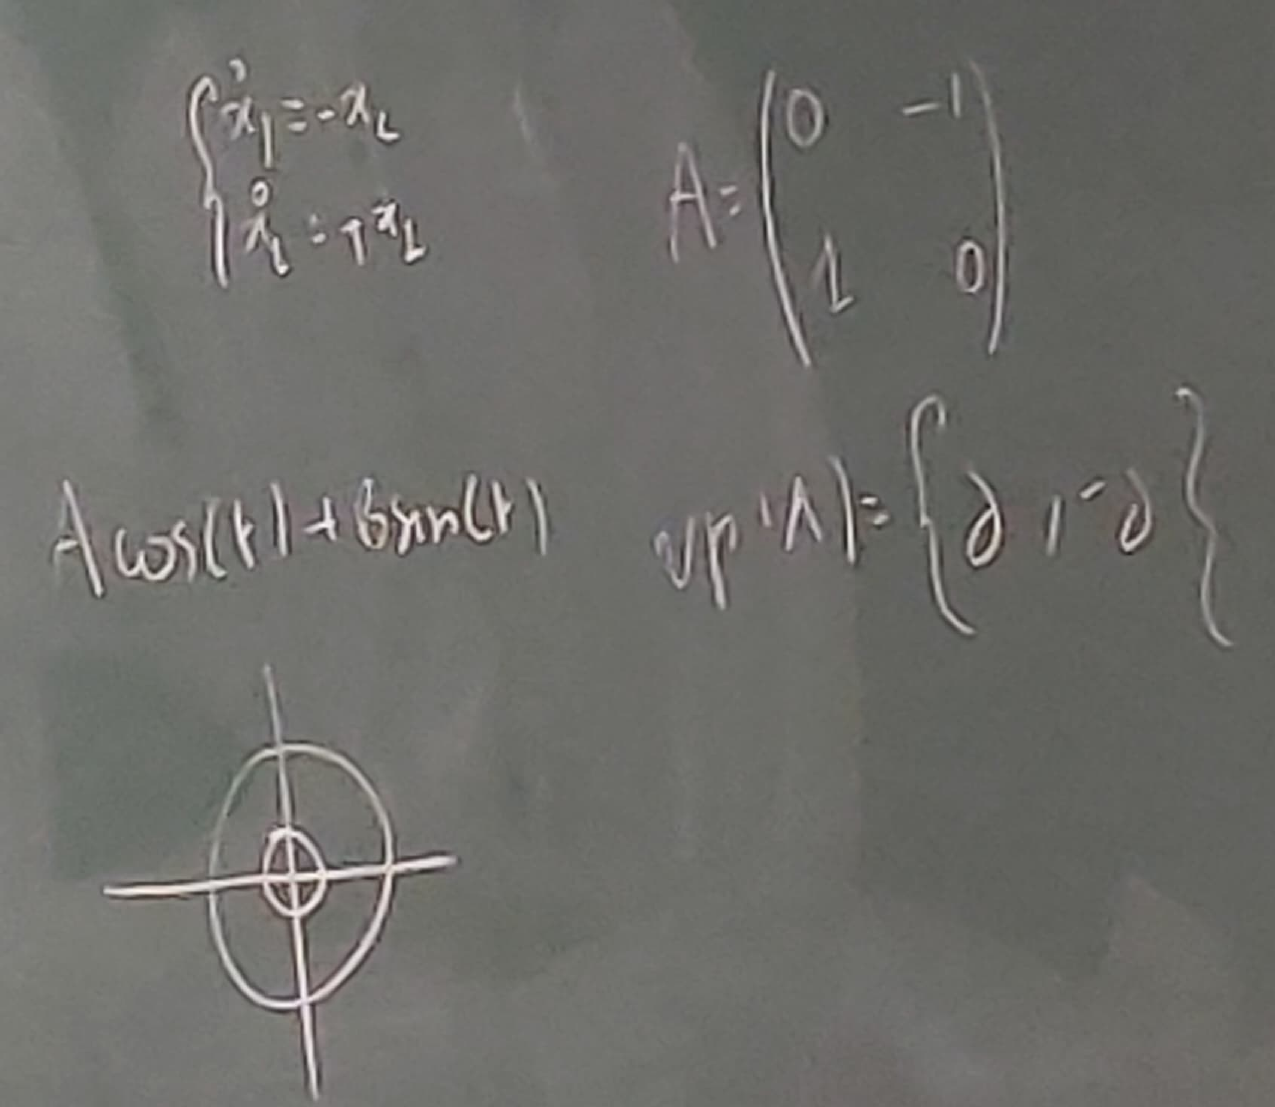 {ẋ₁ = -x₂
ẋ₂ = +x₂
A = (0 -1
1 0)
A cos(t) + B sin(t)
vp(A) = {i, -i}